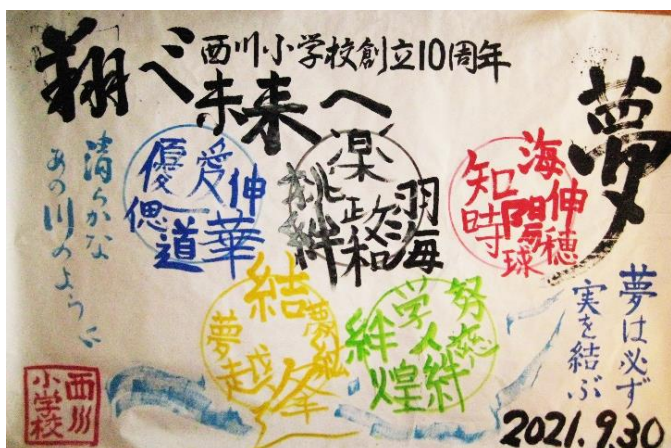 西川小学校創立10周年
翔べ
未来へ
夢
清らかな
あの川のように
優愛伸
偲道華
楽
挑政羽
絆和海
海伸
知陽穂
時球
結
夢越
学努
人
絆絆
煌
夢は必ず
実を結ぶ
西川
小学校
2021.9.30